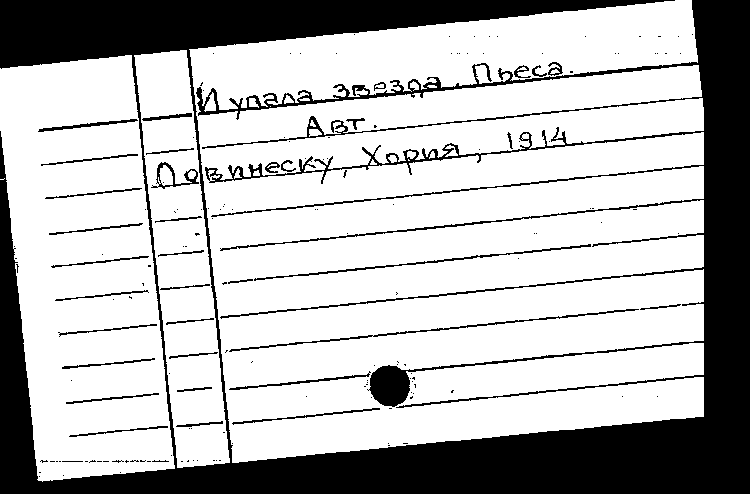 И упала звезда. Пьеса.
Авт.
Ловинеску, Хория, 1914